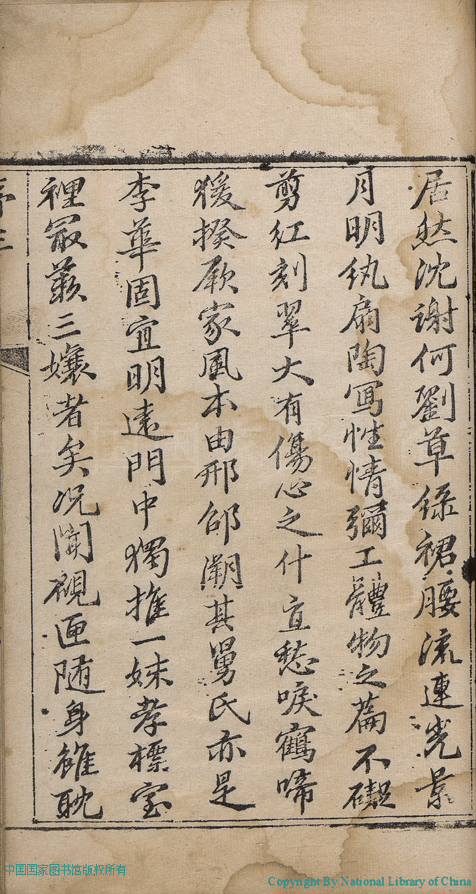 居然沈謝何劉草綠裙腰流連光景
月明紈扇陶寫性情彌工體物之篇不礙
剪紅刻翠大有傷心之什直愁唳鶴啼
猨揆厥家風本由邢邰溯其舅氏亦是
李華固宜明遠門中獨推一妹孝標室
裡最羨三孃者矣況聞硯匣随身雖耽
序三
中国国家图书馆版权所有
Copyright By National Library of China